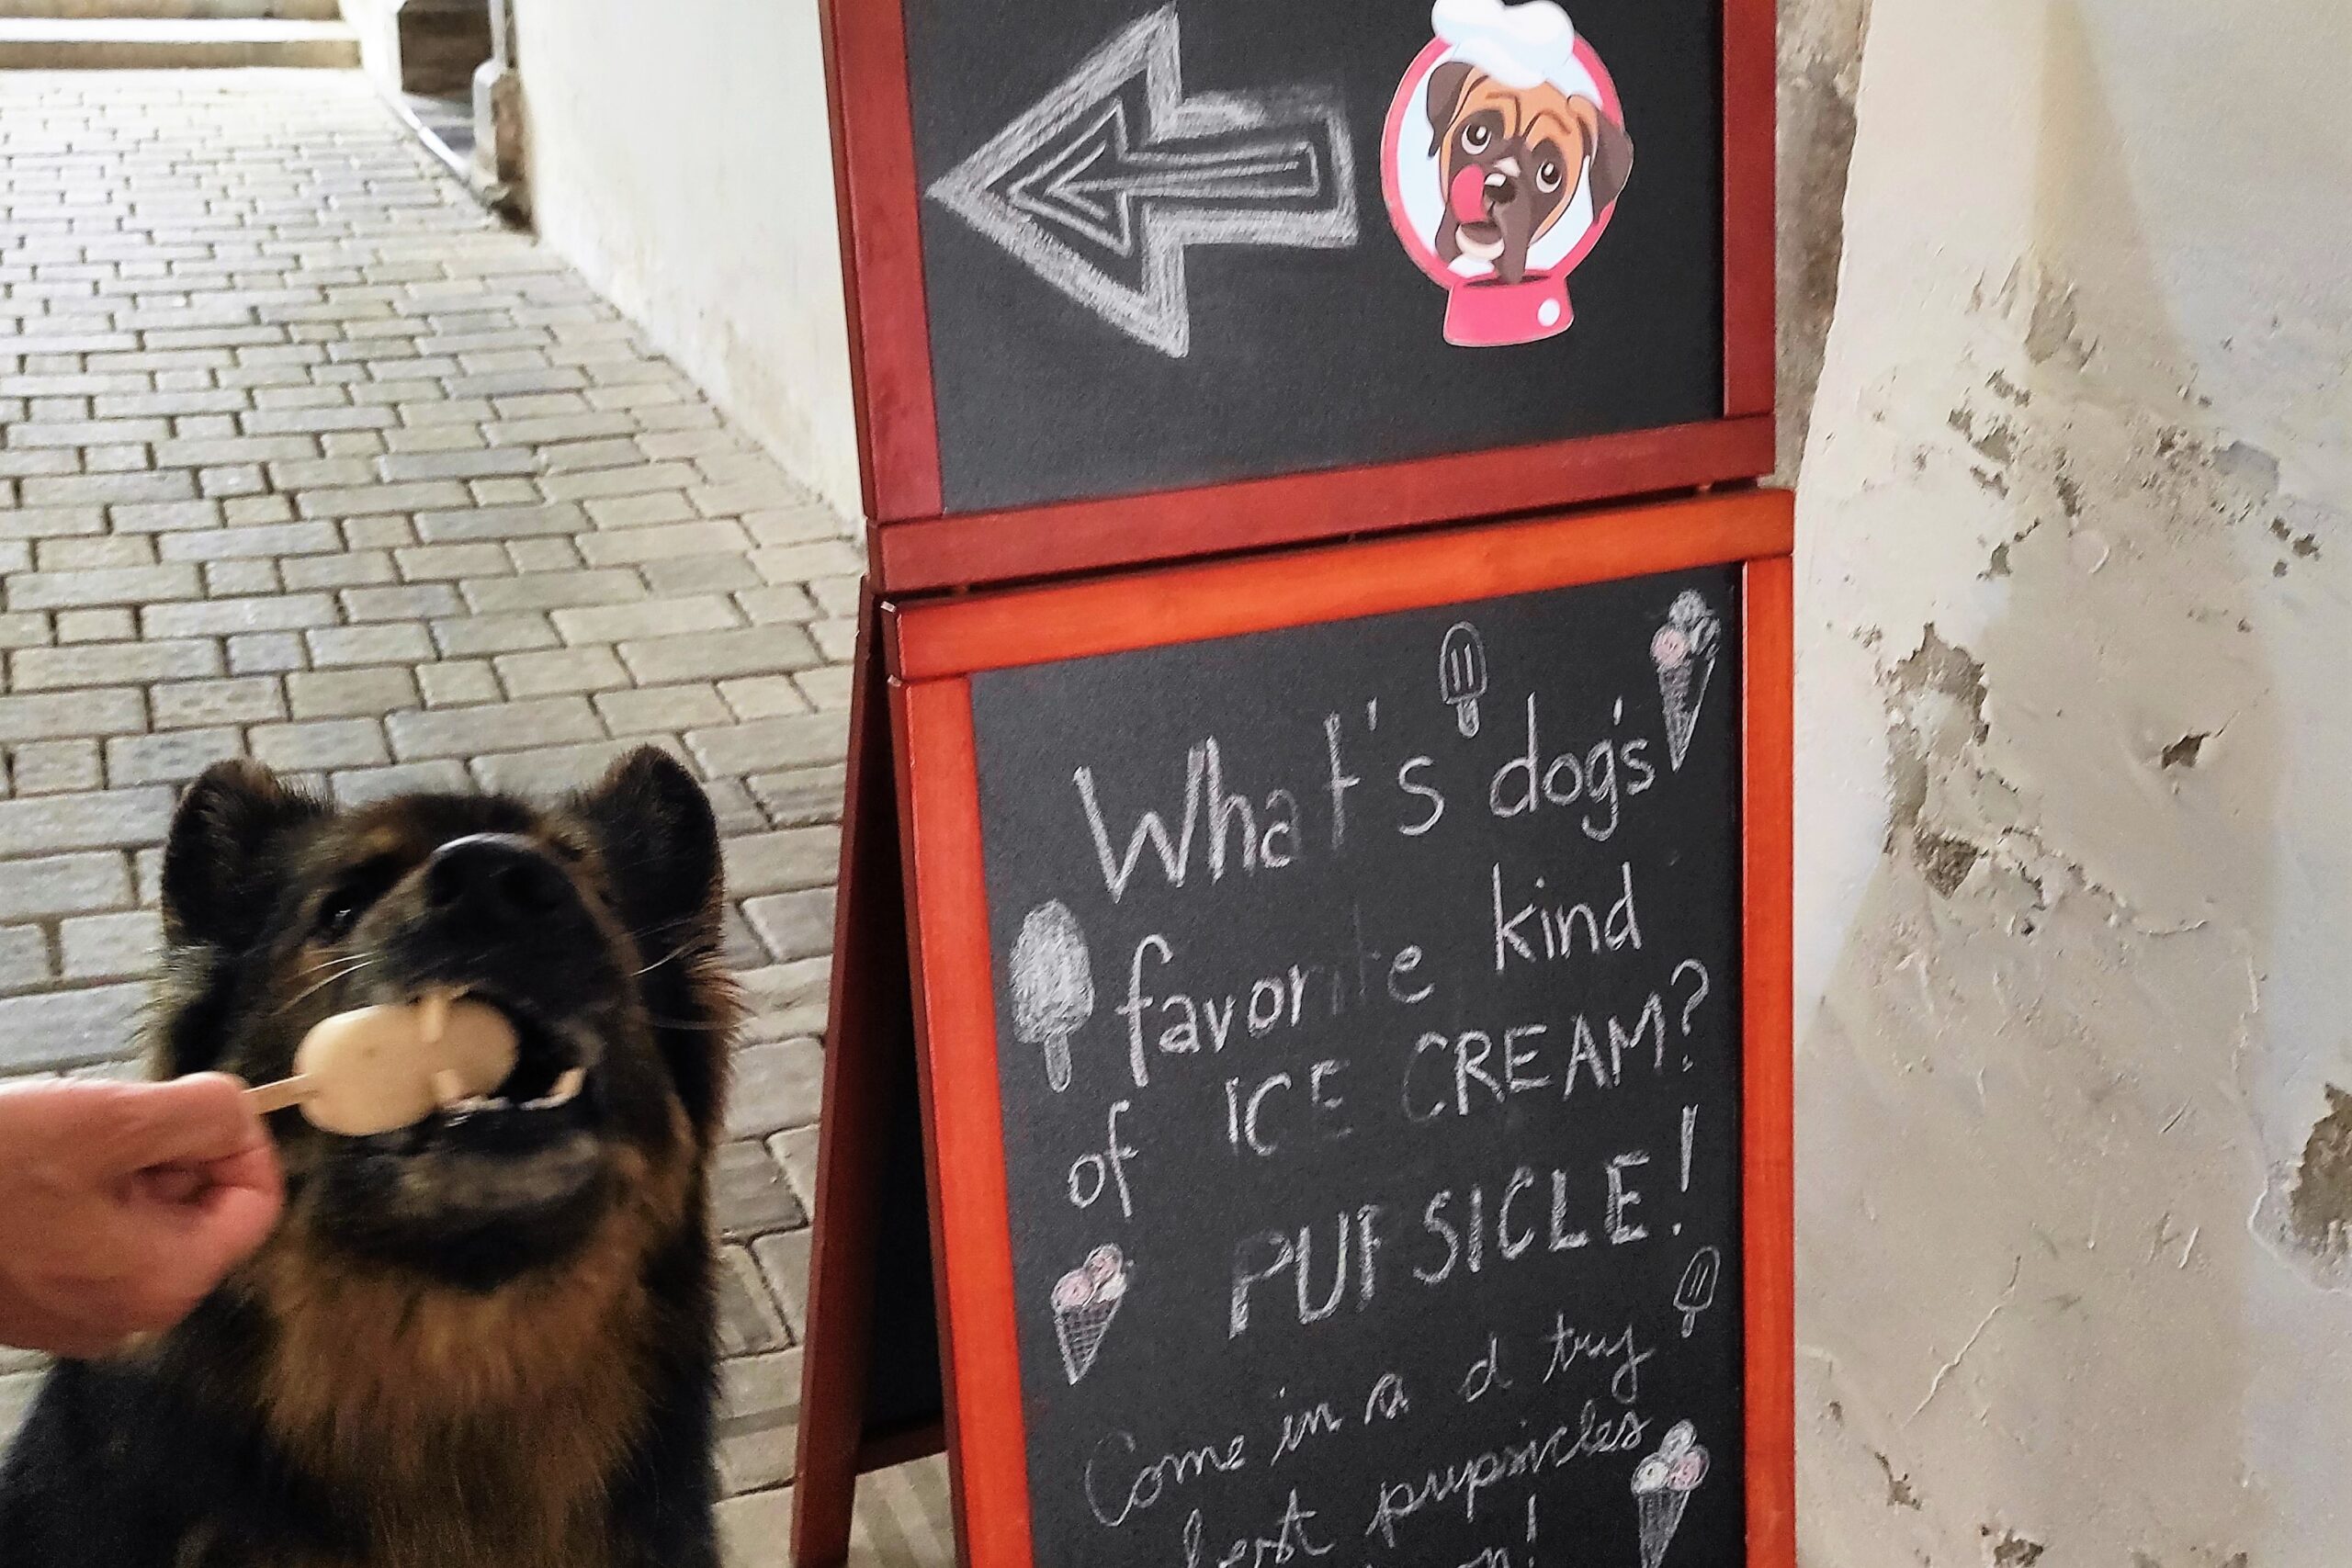 What's dog's
favorite kind
of ICE CREAM?
PUPSICLE!
Come in and try
best pupsicles